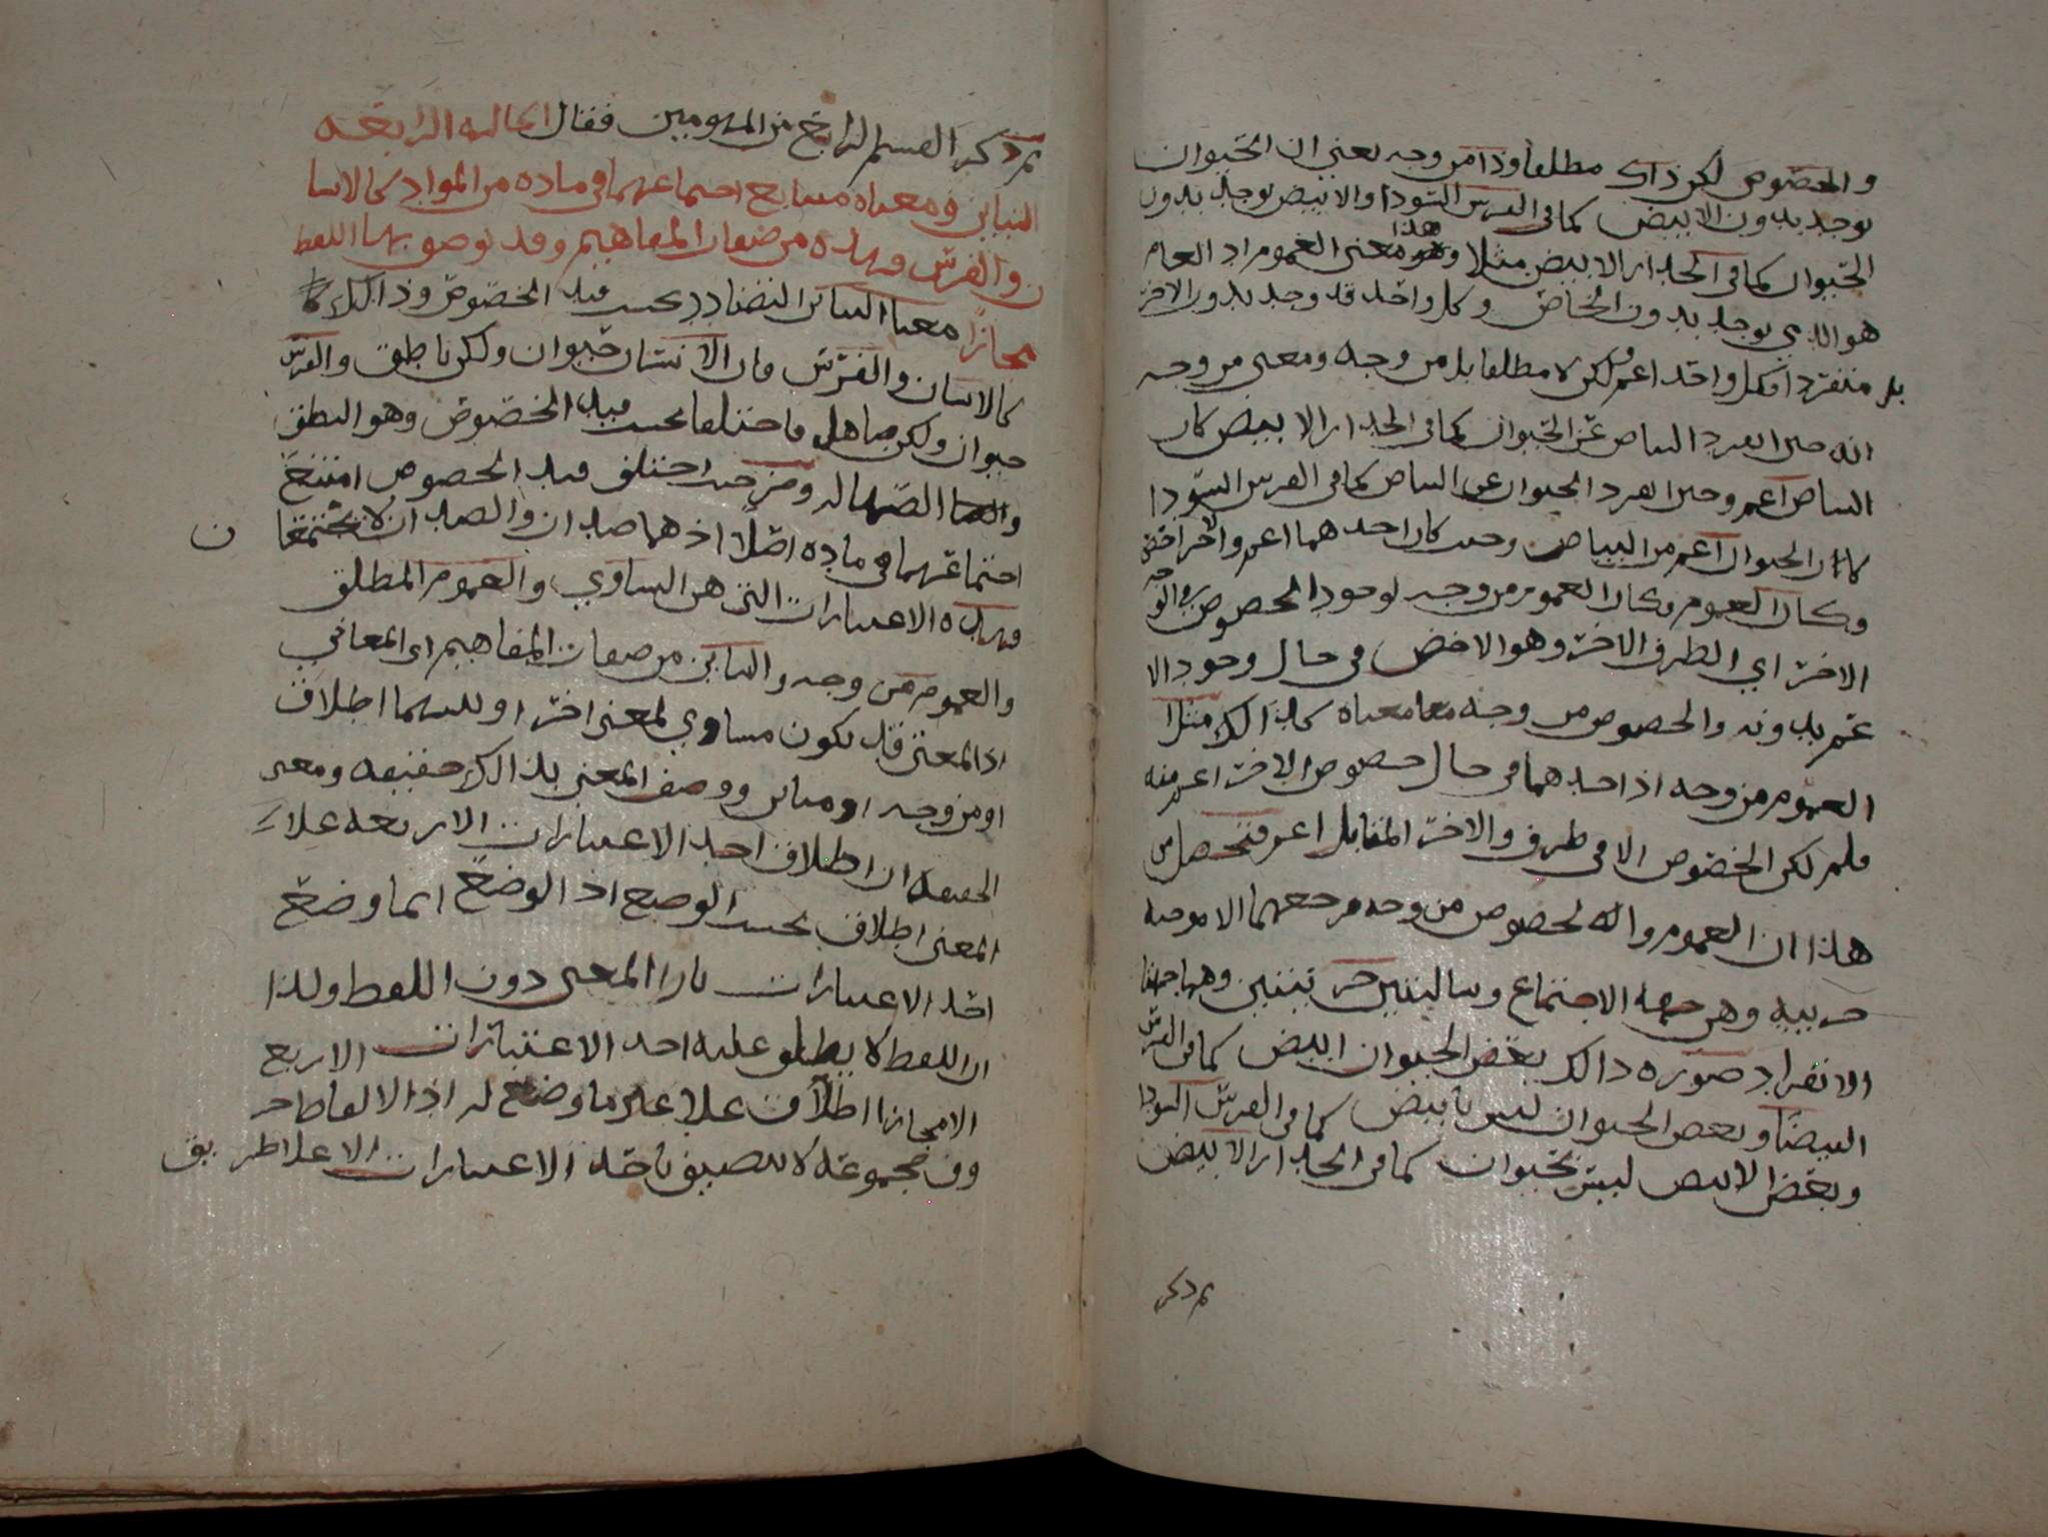 والخصوص لكن ذاك مطلقا وذا من وجه يعني ان الحيوان
يوجد بدون الابيض كما في الفرس السودا والابيض يوجد بدون
الحيوان كما في الجدار الابيض مثلا وهذا معنى العموم اذ العام
هو الذي يوجد بدون الخاص وكل واحد قد وجد بدون الاخر
بل منفردا فكل واحد اعم ولكن لا مطلقا بل من وجه ومعنى من وجه
انه حين انفرد البياض عن الحيوان كما في الجدار الابيض كان
البياض اعم وحين انفرد الحيوان عن البياض كما في الفرس السودا
كان الحيوان اعم من البياض وحيث كان احدهما اعم والاخر اخص
وكان العموم وكان العموم من وجه لوجود الخصوص في الوجه
الاخر اي الطرف الاخر وهو الاخص في حال وجود الا
عم بدونه والخصوص من وجه معا معناه كذالك مثل
العموم من وجه اذ احدهما في حال خصوص الاخر اعم منه
فلم يكن الخصوص الا في طرف والاخر المقابل اعم فتحصل من
هذا ان العموم والخصوص من وجه مرجعهما الا موجبة
جزييه وهي جهة الاجتماع وسالبتين جزئيتين وهما جهتا
الانفراد صورة ذالك بعض الحيوان ابيض كما في الفرس
البيضا وبعض الحيوان ليس بابيض كما في الفرس السودا
وبعض الابيض ليس بحيوان كما في الجدار الابيض
ثم ذكر
ثم ذكر القسم الرابع من المفهومين فقال الحالة الرابعة
التباين ومعناه اجتماعهما في مادة من المواد كالانسا
ن والفرس وهذه من صفات المفاهيم وقد توصف بها اللفظ
مجازا معنا التباين التضادد بحسب قيد الخصوص وذالك
كالانسان والفرس فان الانسان حيوان ولكن ناطق والفرس
حيوان ولكن صاهل فاختلفا بحسب قيد الخصوص وهو النطق
والصهالة ومن حيث اختلف قيد الخصوص امتنع
اجتماعهما في مادة اصلا اذ هما ضدان والضدان لا يجتمعا
ن
وهذه الاعتبارات التي هي التساوي والعموم المطلق
والعموم من وجه والتباين من صفات المفاهيم اي المعاني
اذ المعنى قد يكون مساوي لمعنى اخر او بينهما اطلاق
او من وجه او مباين ووصف المعنى بذالك حقيقه ومعنى
الحقيقه ان اطلاق احد الاعتبارات الاربعه علا
المعنى اطلاق بحسب الوضع اذ الوضع انما وضع
احد الاعتبارات بازا المعنى دون اللفظ ولذا
ان اللفظ لا يطلق عليه احد الاعتبارات الاربع
الا مجازا اطلاق علا غير ما وضع له اذ الالفاظ حر
وف مجموعة لا تتصف باحد الاعتبارات الا علا طريق